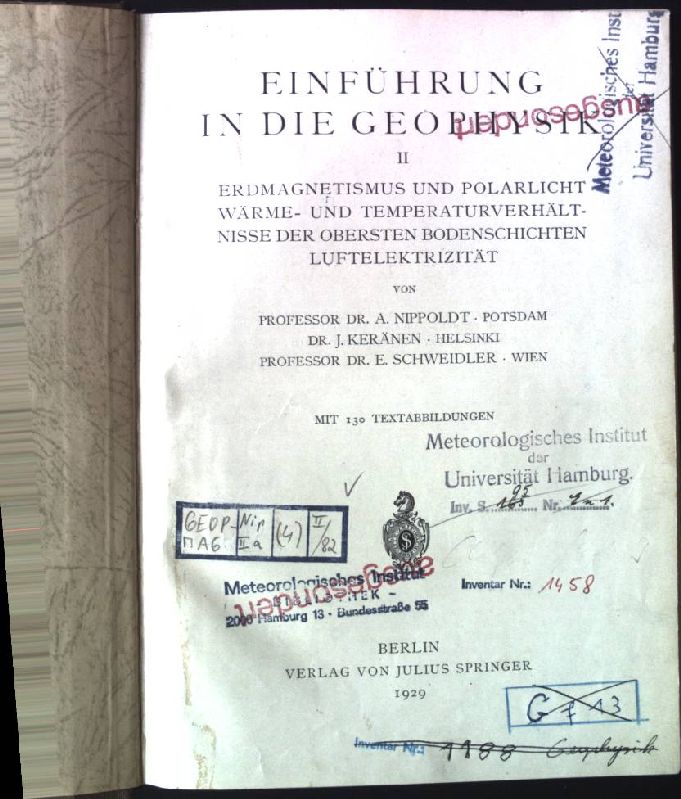 Meteorologisches Inst
der
Universität Hamburg
ausgesondert
EINFÜHRUNG
IN DIE GEOPHYSIK
II
ERDMAGNETISMUS UND POLARLICHT
WÄRME- UND TEMPERATURVERHÄLT-
NISSE DER OBERSTEN BODENSCHICHTEN
LUFTELEKTRIZITÄT
VON
PROFESSOR DR. A. NIPPOLDT · POTSDAM
DR. J. KERÄNEN · HELSINKI
PROFESSOR DR. E. SCHWEIDLER · WIEN
MIT 130 TEXTABBILDUNGEN
Meteorologisches Institut
der
Universität Hamburg.
Inv. S. 95 Nr.
GEOP. Nip (4) II/82
IIa
Meteorologisches Institut
ausgesondert
2000 Hamburg 13 - Bundesstraße 55
Inventar Nr.: 1458
BERLIN
VERLAG VON JULIUS SPRINGER
1929
G f 13
Inventar Nr.: 1188 Geophysik